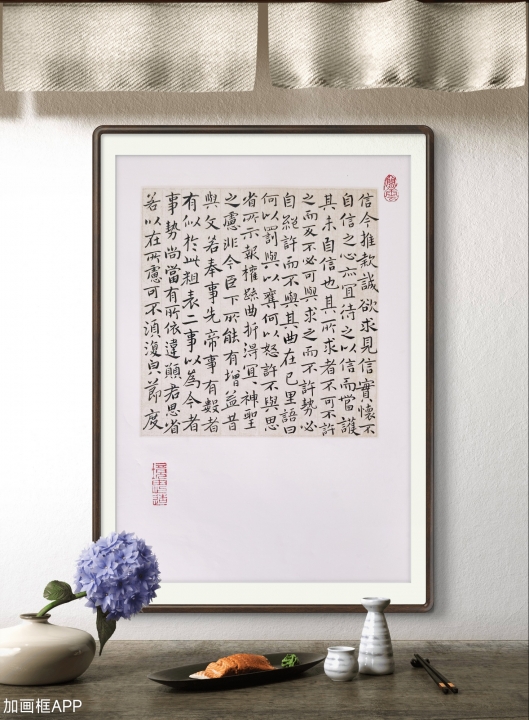 信今推款誠欲求見信實懷不
自信之心亦宜待之以信而當護
其未自信也其所求者不可不許
之而反不必可與求之而不許勢必
自絕許而不與其曲在己里語曰
何以罰與以奪何以怒許不與思
省所示報權疏曲折得宜〻神聖
之慮非今臣下所能有增益昔
與文若奉事先帝事有數者
有似於此粗表二事以為今者
事勢尚當有所依違願君思省
若以在所慮可不須復皃節度
加画框APP